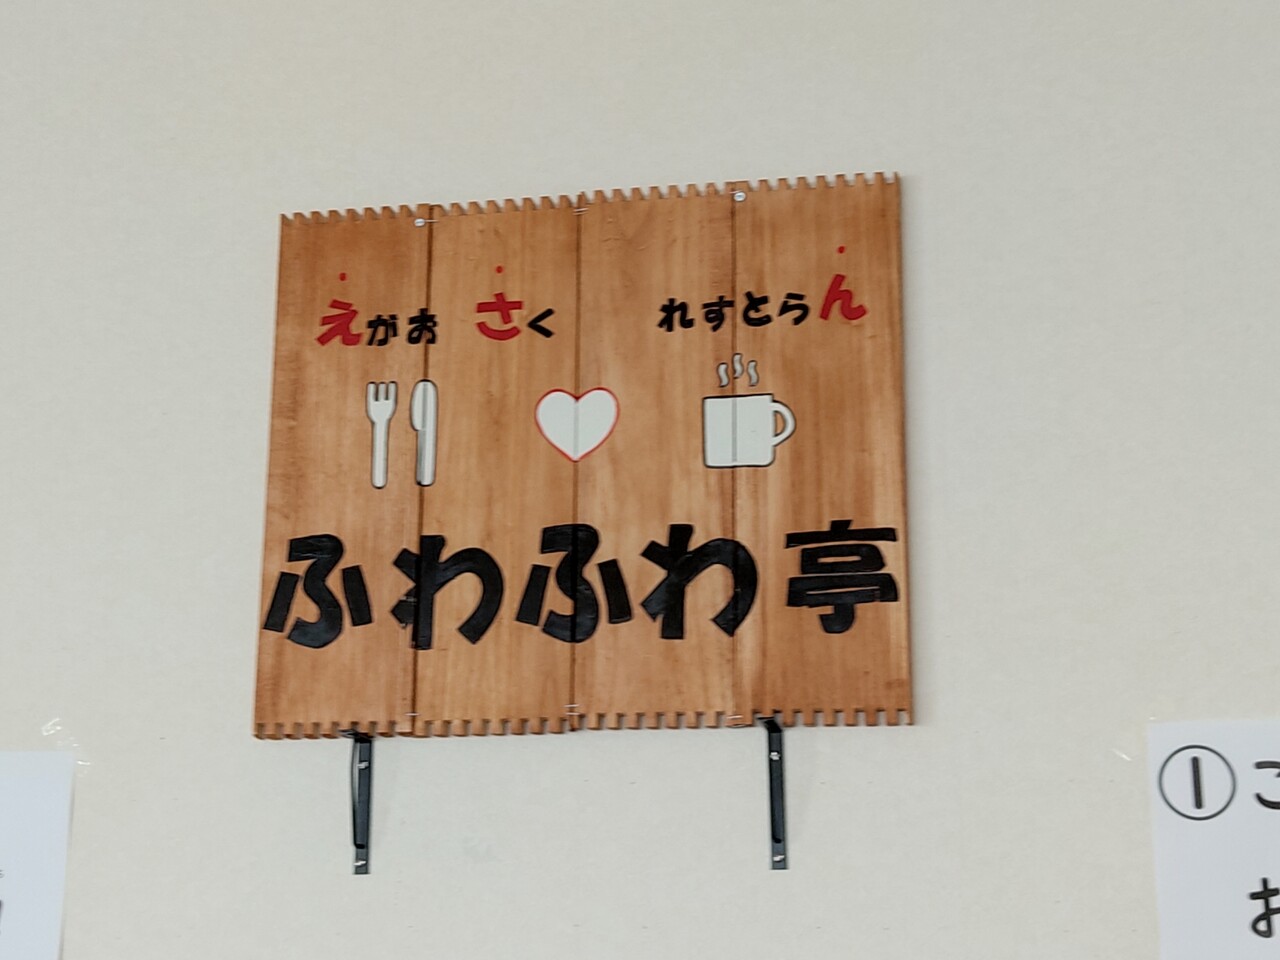 えがお さく れすとらん
ふわふわ亭
①
お